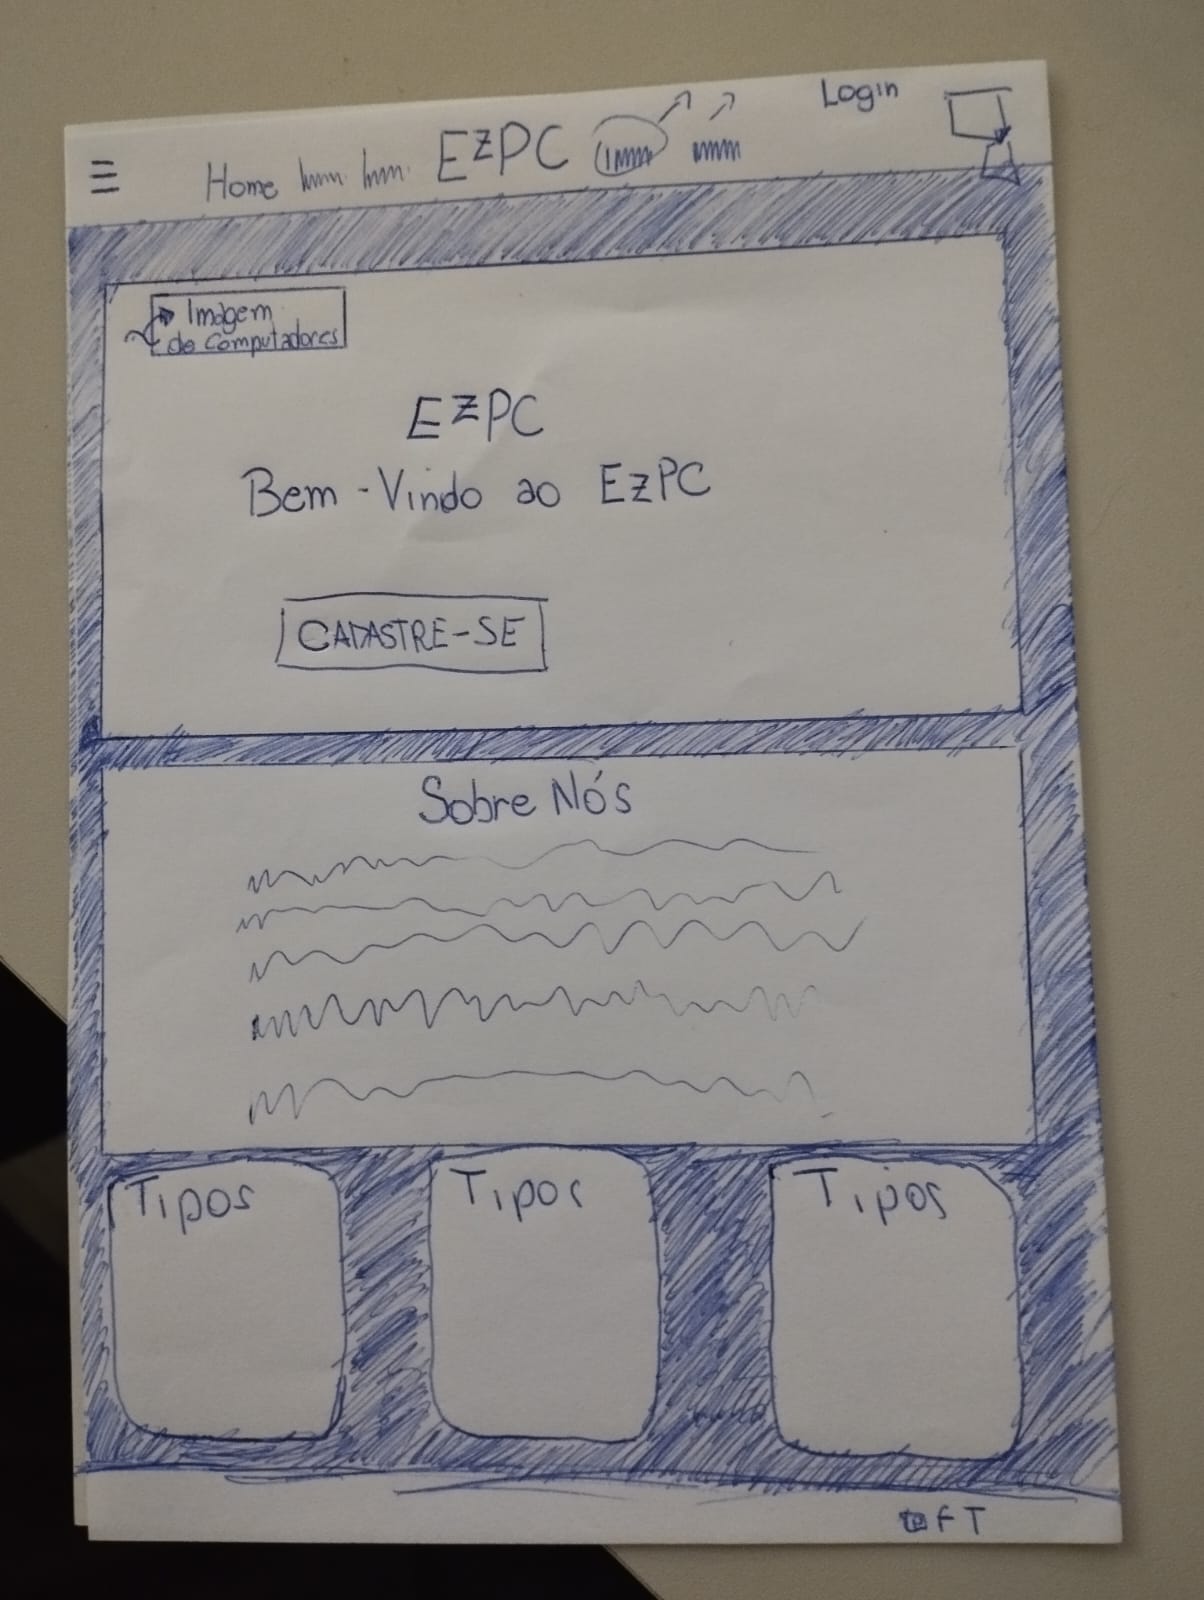 Home EzPC Login
Imagem
de Computadores
EzPC
Bem-Vindo ao EzPC
CADASTRE-SE
Sobre Nós
Tipos Tipos Tipos
F T